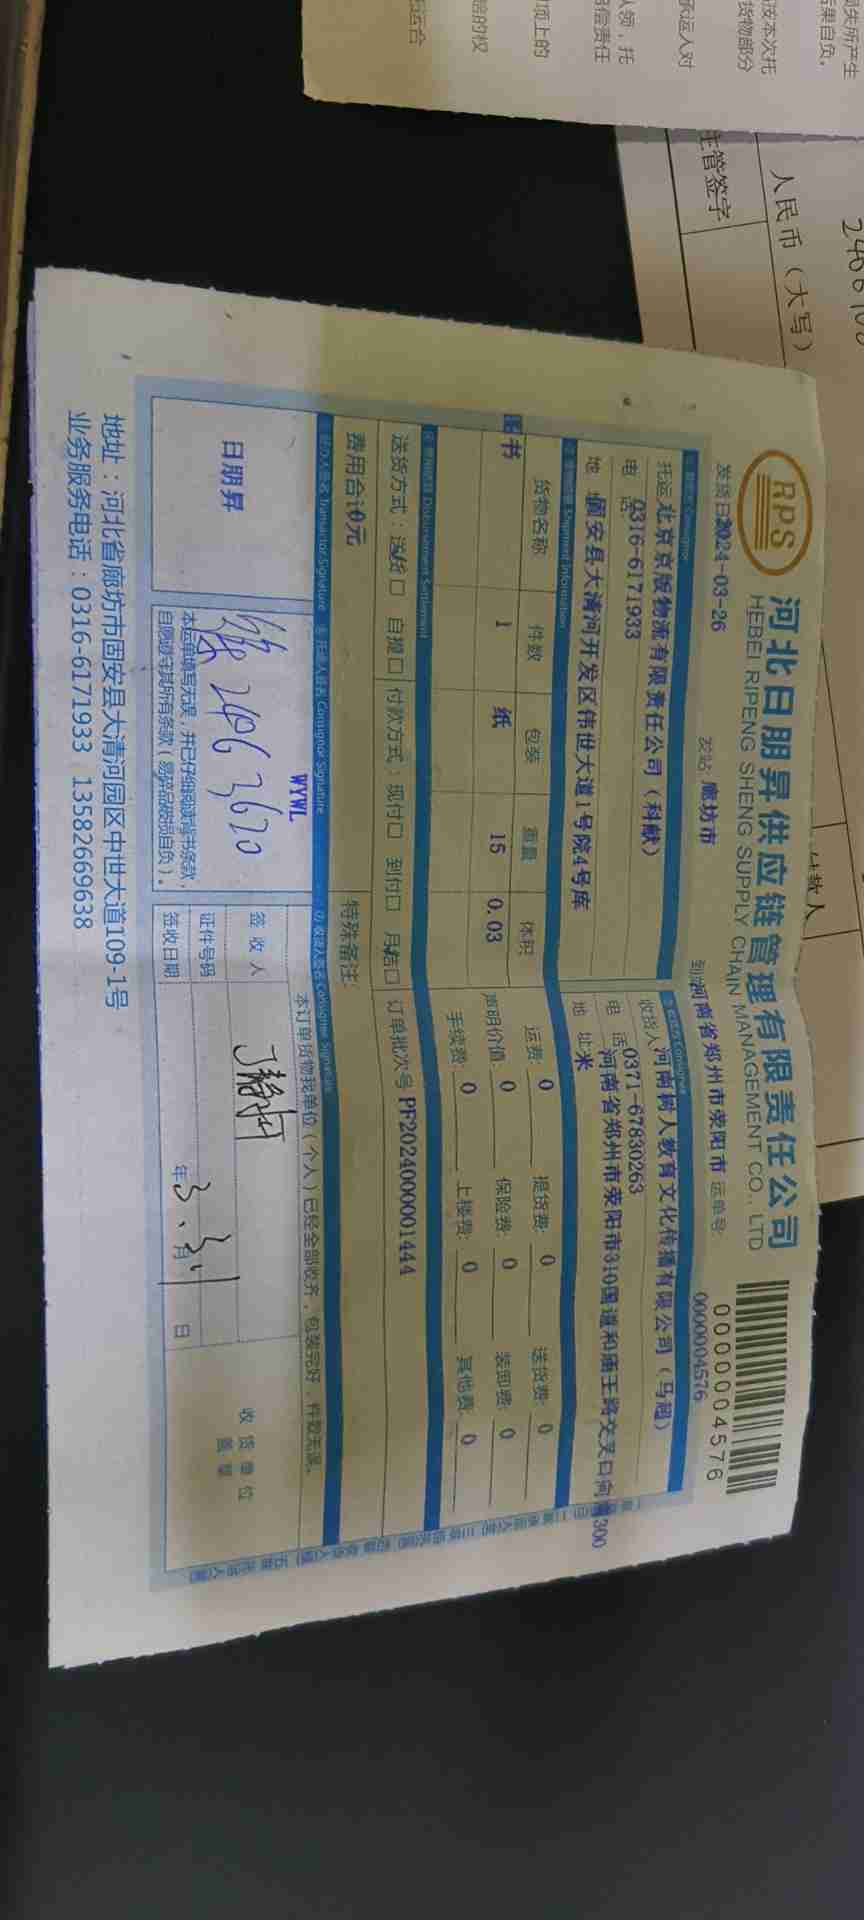 RPS
河北日朋昇供应链管理有限责任公司
HEBEI RIPENG SHENG SUPPLY CHAIN MANAGEMENT CO., LTD
0000004576
发货日2024-03-26
发站 廊坊市
到 河南省郑州市荥阳市
运单号:
0000004576
托运 北京京版物流有限责任公司（科献）
收货人 河南树人教育文化传播有限公司（马超）
电 话 0316-6171933
电 话 0371-67830263
地 址 固安县大清河开发区伟世大道1号院4号库
河南省郑州市荥阳市310国道和庙王路交叉口向 300
地 址 米
货物名称 件数 包装 重量 体积
图书 1 纸 15 0.03
运费: 0 提货费: 0 送货费: 0
声明价值: 0 保险费: 0 装卸费: 0
手续费: 0 上楼费: 0 其他费: 0
送货方式: 送货☐ 自提☐ 付款方式: 现付☐ 到付☐ 月结☐
订单批次号 PF2024000001444
费用合计0元
特殊备注:
日朋昇
WYWL
2406 3670
本运单填写无误，并已仔细阅读背书条款，
自愿遵守其所有条款（易碎品破损自负）。
本订单货物我单位（个人）已经全部收齐，包装完好，件数无误。
签 收 人
证件号码
签收日期 年 3.31 月 日
收 货 单 位
盖 章
地址：河北省廊坊市固安县大清河园区中世大道109-1号
业务服务电话：0316-6171933 13582669638
人民币（大写）
主管签字
付款人